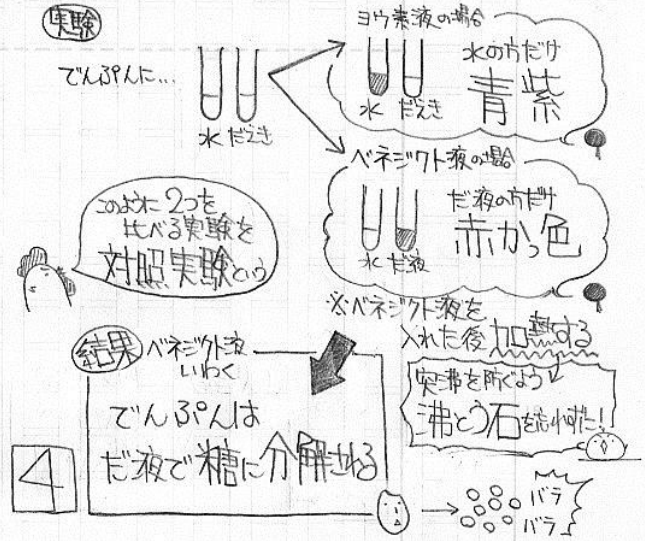 実験
でんぷんに…
水 だえき
ヨウ素液の場合
水の方だけ
青紫
水 だえき
ベネジクト液の場合
だ液の方だけ
赤かっ色
水 だ液
このように2つを
比べる実験を
対照実験という
※ベネジクト液を
入れた後加熱する
突沸を防ぐよう
沸とう石を忘れずに!
結果 ベネジクト液
いわく
でんぷんは
だ液で糖に分解される
4
バラ
バラ